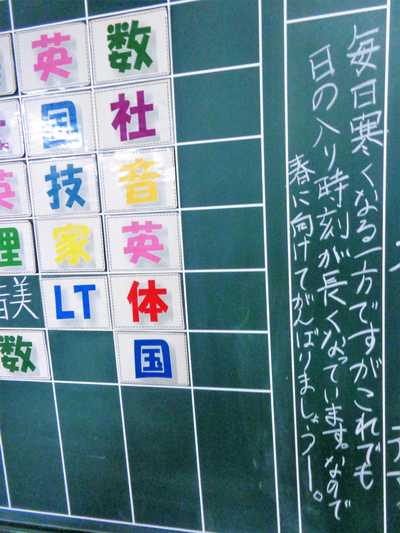 毎日寒くなる一方ですがこれでも
日の入り時刻が長くなっています。なので
春に向けてがんばりましょうー。
数
社
音
英
体
国
英
国
技
家
LT
英
理
美
数